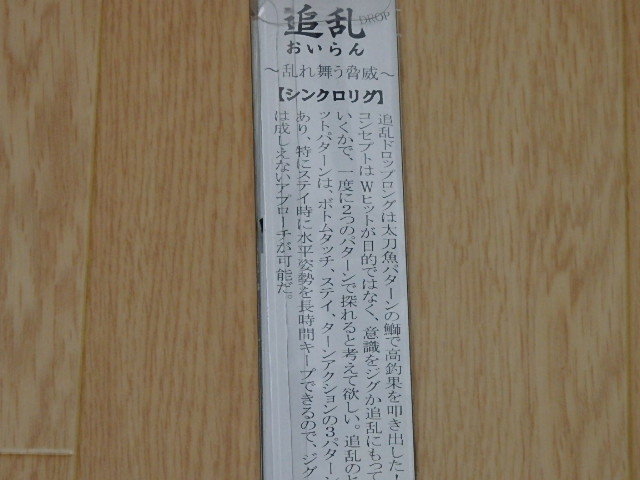 追乱
DROP
おいらん
～乱れ舞う脅威～
【シンクロリグ】
追乱ドロップロングは太刀魚パターンの鰤で高釣果を叩き出した！
コンセプトはWヒットが目的ではなく、意識をジグか追乱にもって
いくかで、一度に2つのパターンで探れると考えて欲しい。追乱のヒ
ットパターンは、ボトムタッチ、ステイ、ターンアクションの3パターン
あり、特にステイ時に水平姿勢を長時間キープできるので、ジグ
は成しえないアプローチが可能だ。